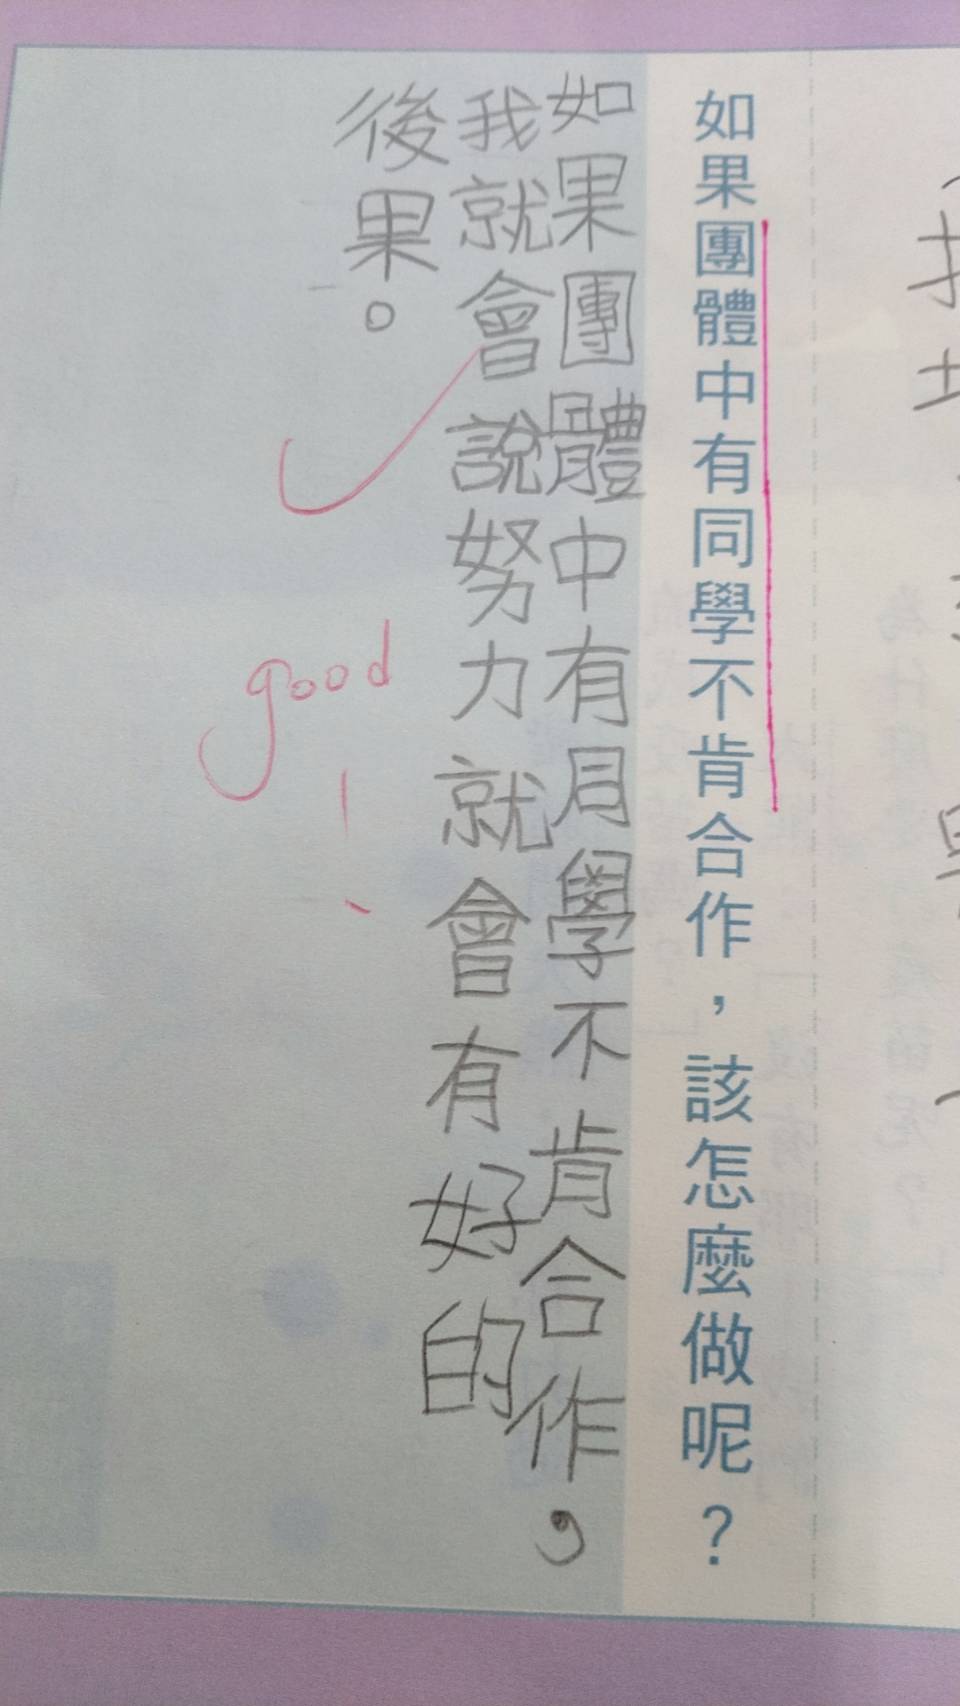 如果團體中有同學不肯合作，該怎麼做呢？
如果團體中有同學不肯合作，
我就會說努力就會有好的
後果。
good!